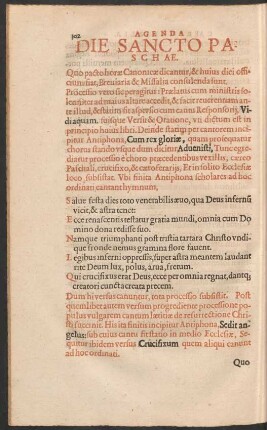 302 AGENDA
DIE SANCTO PA-
SCHAE.
Quo pacto horæ Canonicæ dicantur, & huius diei offi
cium fiat, Breuiaria & Missalia consulenda sunt.
Processio vero sic peragitur: Prælatus cum ministris so-
lenniter ad maius altare accedit, & facit reuerentiam an-
te illud, & stabit
Responsoriū, Vi-
di aquam, suisque Versu & Oratione, vti dictum est in
principio huius libri. Deinde statim per cantorem inci-
pitur Antiphona, Cum rex gloriæ, quam prosequatur
chorus stando vsque dum dicitur Aduenisti, Tuncque
processio exeat è choro præcedentibus vexillis, cereo
Paschali, crucifixo, & cæroferarijs, Er in solito Ecclesiæ
loco subsistat. Vbi finita Antiphona scholares ad hoc
ordinati cantent hymnum,
Salue festa dies toto venerabilis æuo, qua Deus infernū
vicit, & astra tenet:
Ecce renascentis testatur gratia mundi, omnia cum Do
mino dona redisse suo.
Namque triumphanti post tristia tartara Christo vndi-
que fronde nemus gramina flore fauent.
Legibus inferni oppressis, super astra meantem laudant
rite Deum lux, polus, arua, fretum.
Qui crucifixus erat Deus, ecce per omnia regnat, dantq;
creatori cuncta creata precem.
Dum hi versus canuntur, tota processio subsistit. Post
quemlibet autem versum progrediente processione po-
pulus vulgarem cantum lætitiæ de resurrectione Chri-
sti succinit. His ita finitis incipitur Antiphona, Sedit an-
gelus: sub cuius cantu fit statio in medio Ecclesiæ, Se-
quitur ibidem versus Crucifixum quem aliqui canunt
ad hoc ordinati.
Quo